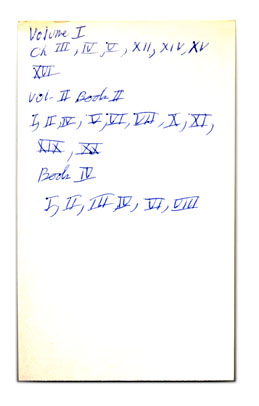 Volume I
Ch III, IV, V, XII, XIV, XV
XVI
Vol. II Book II
I, II, IV, V, VI, VII, X, XI,
XIX, XX
Book IV
I, II, III, IV, VI, VIII